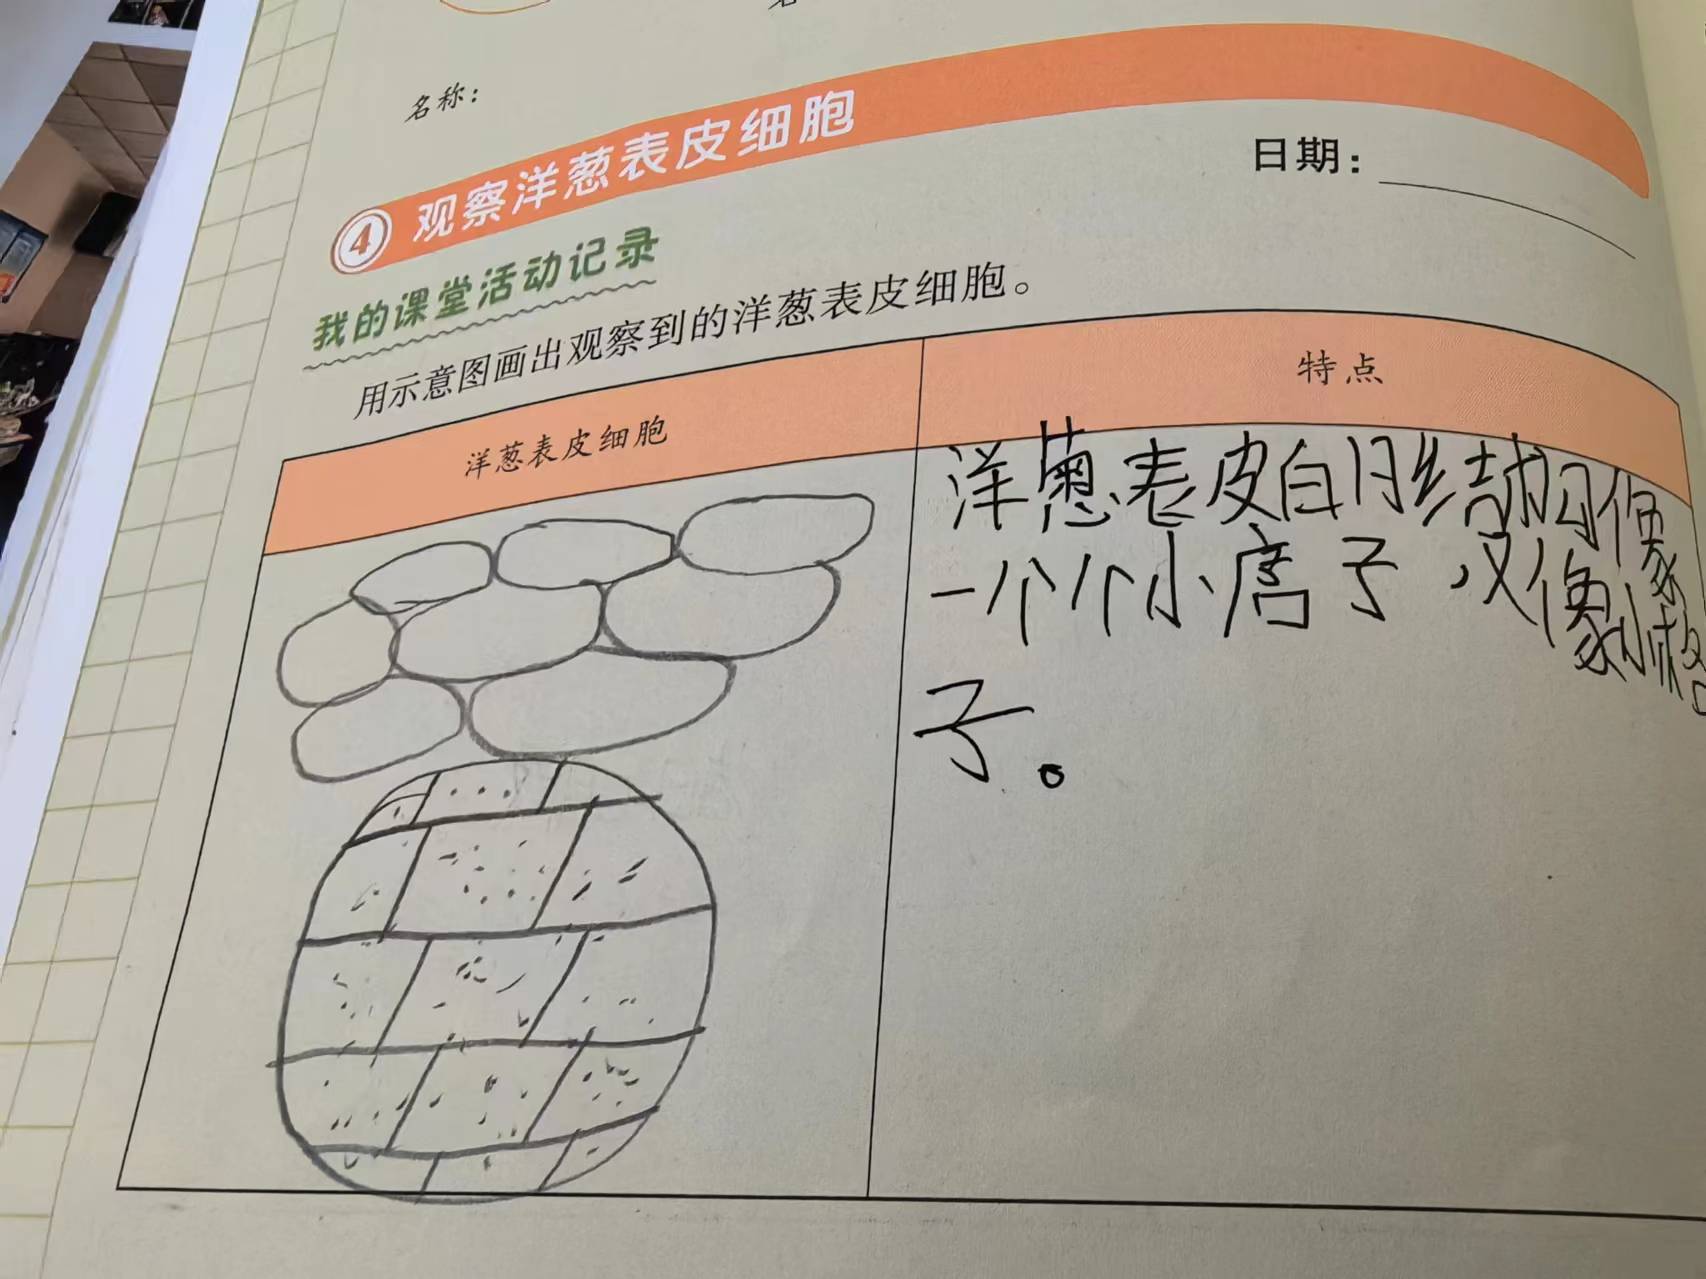 名称：
④ 观察洋葱表皮细胞
日期：
我的课堂活动记录
用示意图画出观察到的洋葱表皮细胞。
洋葱表皮细胞
特点
洋葱表皮白月形结构像
一个个小房子 又像小格
子。